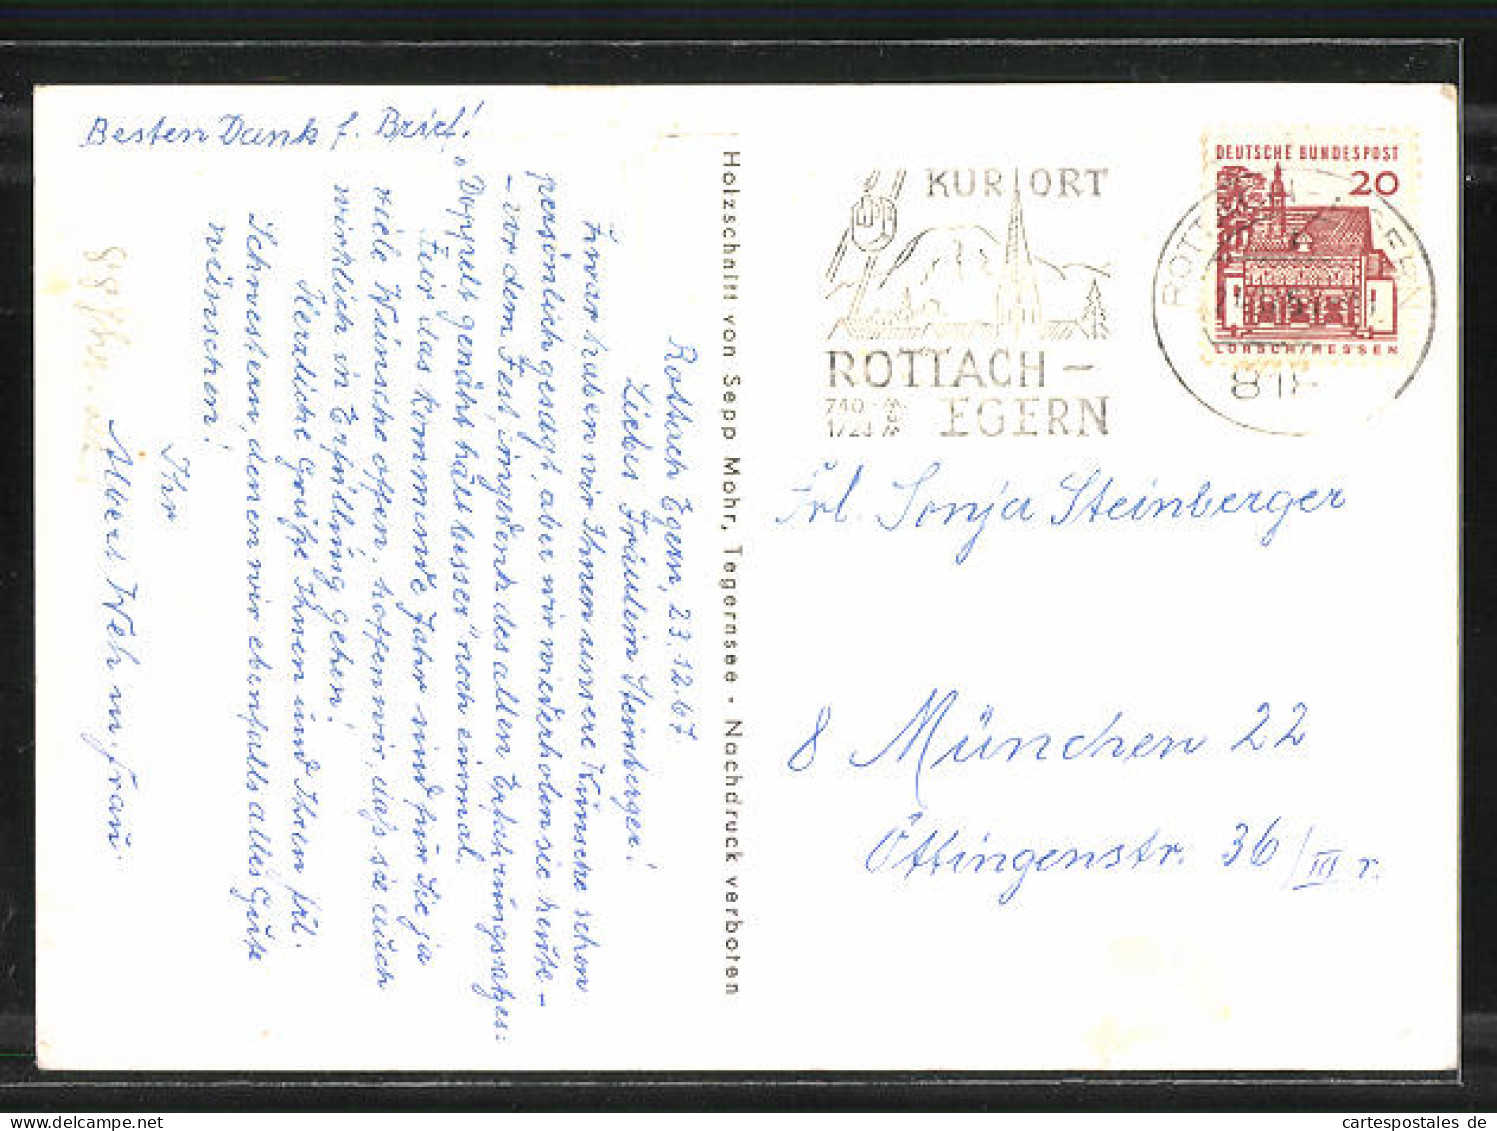 Besten Dank f. Brief!
Rottach Egern, 23.12.67.
Liebes Fräulein Steinberger!
Zwar haben wir Ihnen unsere Wünsche schon
persönlich gesagt, aber wir wiederholen sie heute -
- vor dem Fest, eingedenk des alten Erfahrungssatzes:
„Doppelt genäht hält besser" noch einmal.
Für das kommende Jahr sind für Sie ja
viele Wünsche offen, hoffen wir, daß sie auch
wirklich in Erfüllung gehen!
Herzliche Grüße Ihnen und Ihren frl.
Schwestern, denen wir ebenfalls alles Gute
wünschen!
Ihr
Albert Weh u. Frau.
Holzschnitt von Sepp Mohr, Tegernsee · Nachdruck verboten
KURORT
ROTTACH -
EGERN
DEUTSCHE BUNDESPOST
20
LORSCH/HESSEN
ROTTACH-EGERN
818
Frl. Sonja Steinberger
8 München 22
Öttingenstr. 36/III r.
cartespostales de